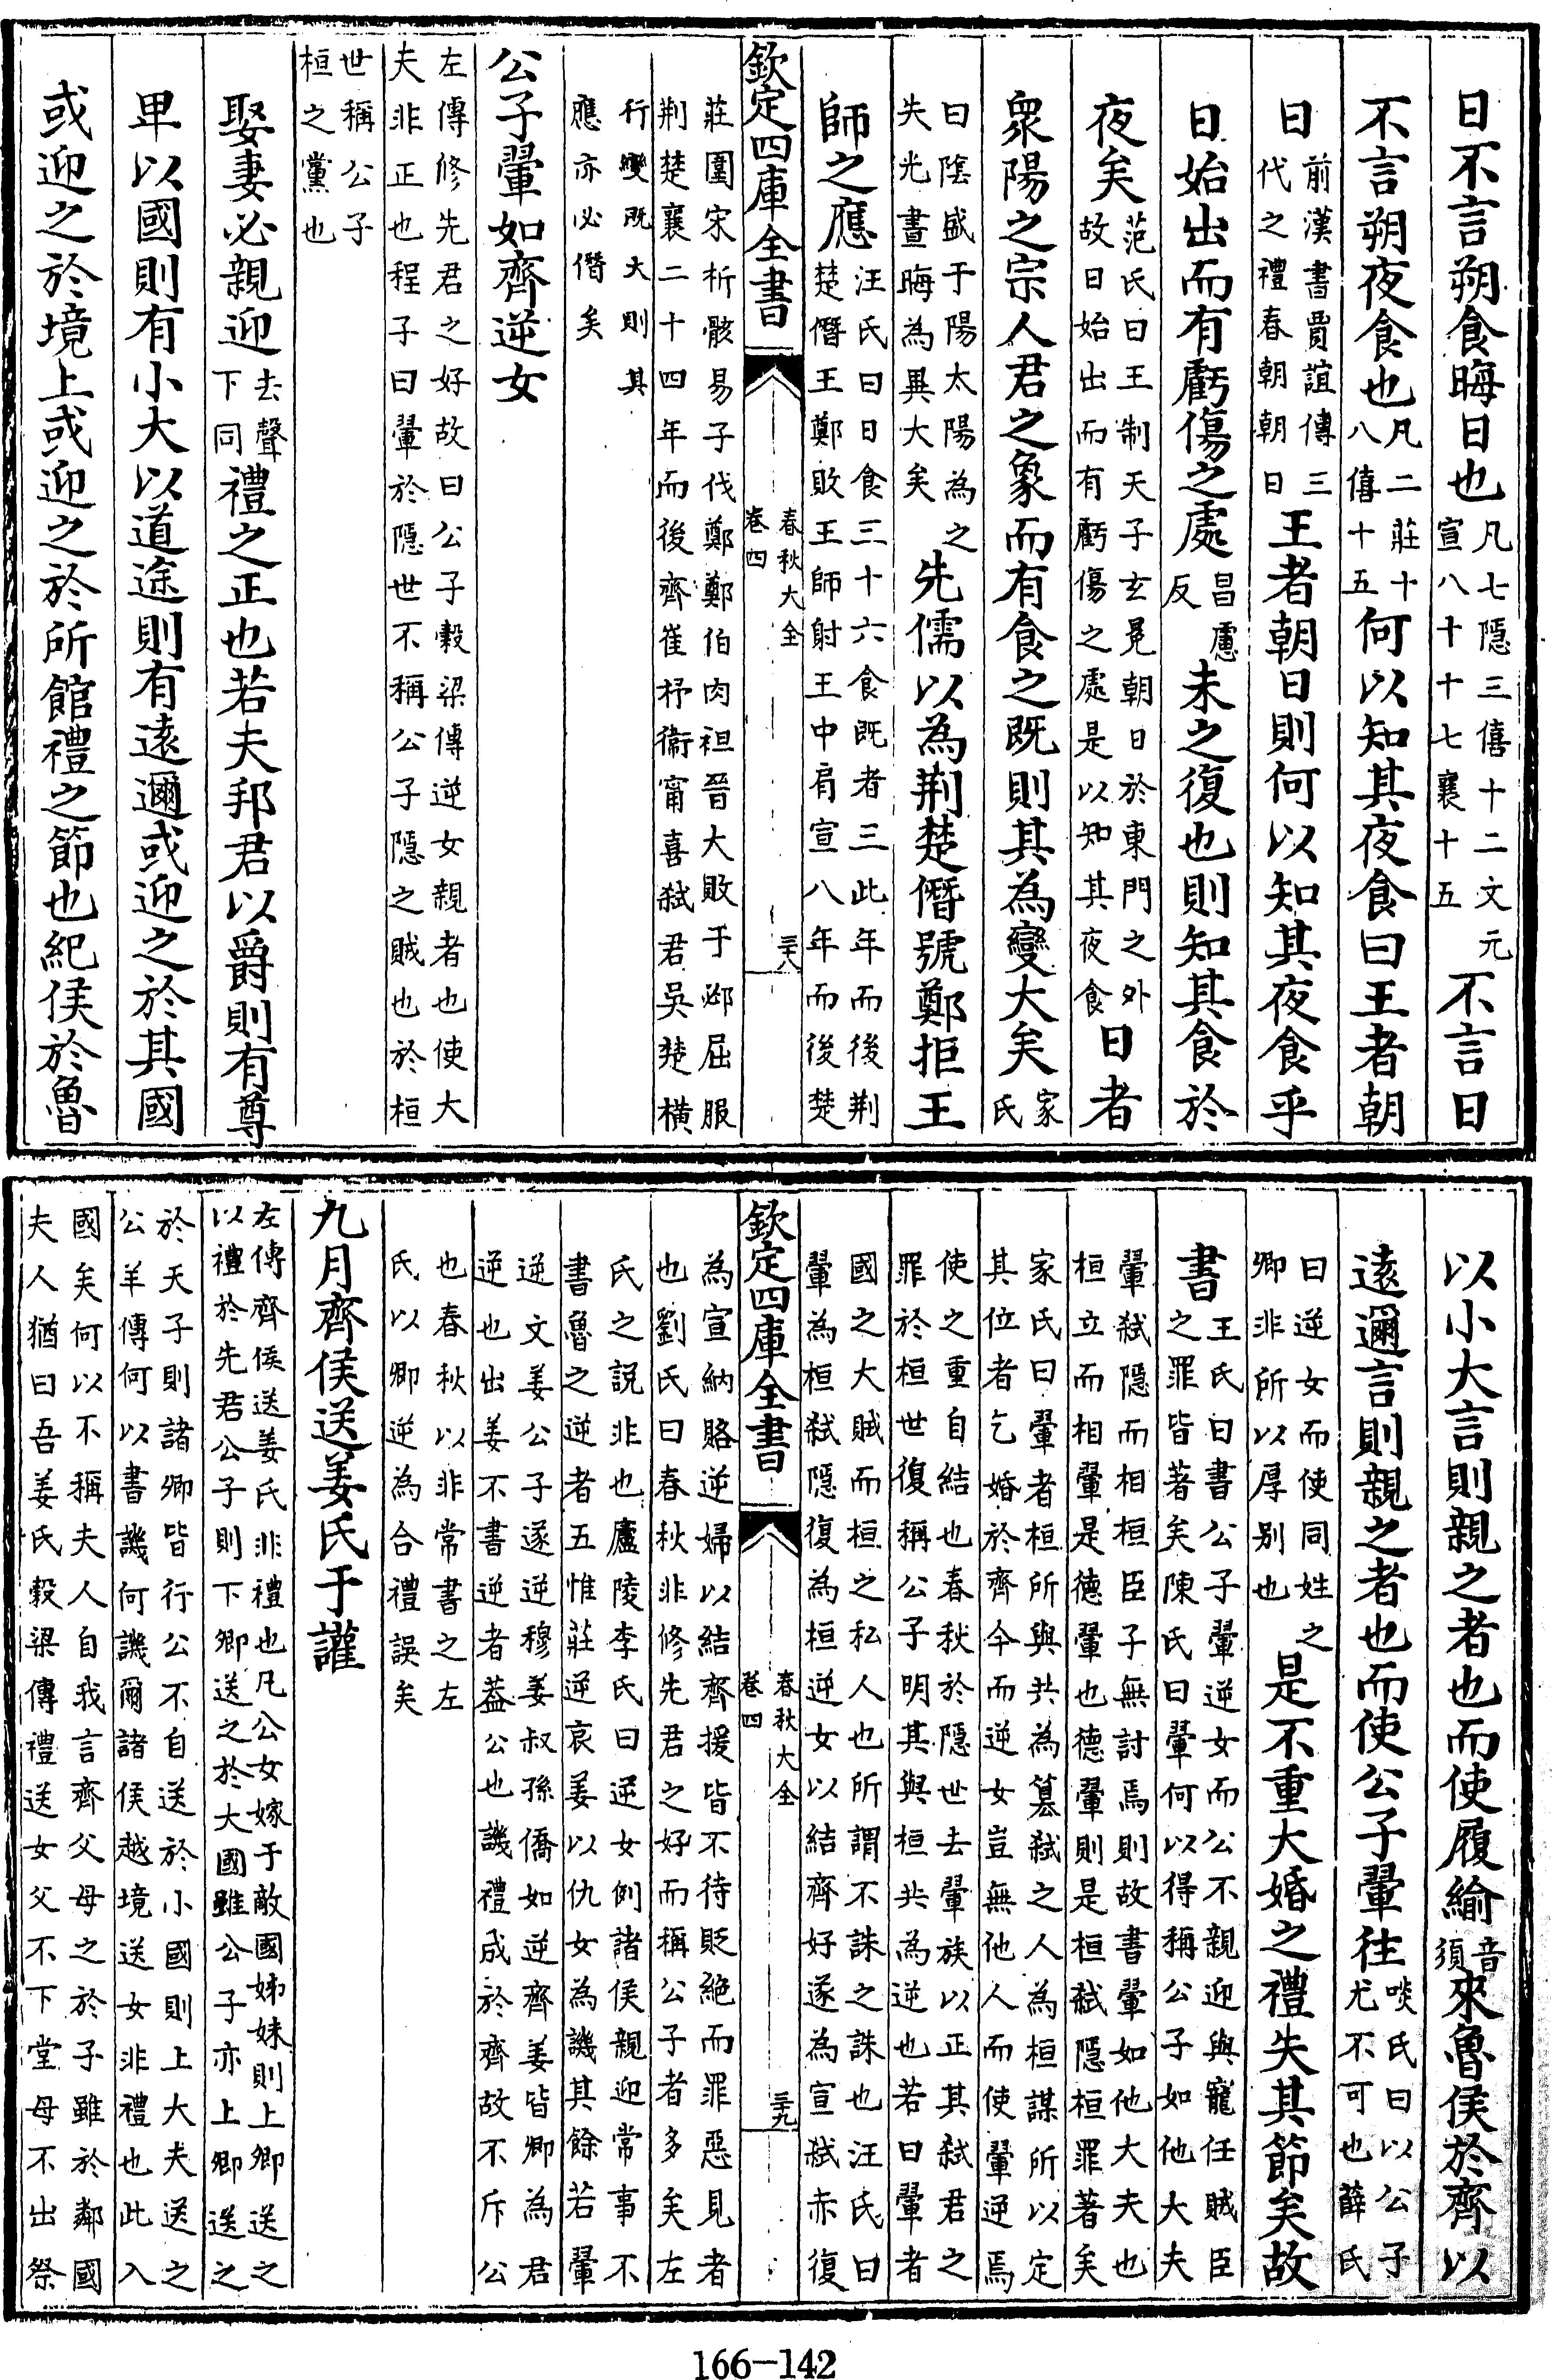 日不言朔食晦日也凡七隠三僖十二文元宣八十十七襄十五不言日
不言朔夜食也凡二莊十八僖十五何以知其夜食曰王者朝
日前漢書賈誼傳三代之禮春朝朝日王者朝日則何以知其夜食乎
日始出而有虧傷之處昌慮反未之復也則知其食於
夜矣范氏曰王制天子玄冕朝日於東門之外故日始出而有虧傷之處是以知其夜食日者
衆陽之宗人君之象而有食之既則其為變大矣家氏
曰陰盛于陽太陽為之失光晝晦為異大矣先儒以為荆楚僭號鄭拒王
師之應汪氏曰日食三十六食既者三此年而後荆楚僭王鄭敗王師射王中肩宣八年而後楚
欽定四庫全書 春秋大全 卷四 三十八
莊圍宋析骸易子伐鄭鄭伯肉袒晉大敗于邲屈服荆楚襄二十四年而後齊崔杼衞甯喜弑君吳楚橫
行變既大則其應亦必僭矣
公子翬如齊逆女
左傳修先君之好故曰公子穀梁傳逆女親者也使大夫非正也程子曰翬於隠世不稱公子隠之賊也於桓
世稱公子桓之黨也
娶妻必親迎去聲下同禮之正也若夫邦君以爵則有尊
卑以國則有小大以道途則有遠邇或迎之於其國
或迎之於境上或迎之於所館禮之節也紀侯於魯
以小大言則親之者也而使履緰音須來魯侯於齊以
遠邇言則親之者也而使公子翬往啖氏曰以公子尤不可也薛氏
曰逆女而使同姓之卿非所以厚别也是不重大婚之禮失其節矣故
書王氏曰書公子翬逆女而公不親迎與寵任賊臣之罪皆著矣陳氏曰翬何以得稱公子如他大夫
翬弑隠而相桓臣子無討焉則故書翬如他大夫也桓立而相翬是德翬也德翬則是桓弑隠桓罪著矣
家氏曰翬者桓所與共為簒弑之人為桓謀所以定其位者乞婚於齊今而逆女豈無他人而使翬逆焉
使之重自結也春秋於隠世去翬族以正其弑君之罪於桓世復稱公子明其與桓共為逆也若曰翬者
國之大賊而桓之私人也所謂不誅之誅也汪氏曰翬為桓弑隠復為桓逆女以結齊好遂為宣弑赤復
欽定四庫全書 春秋大全 卷四 三十九
為宣納賂逆婦以結齊援皆不待貶絶而罪惡見者也劉氏曰春秋非修先君之好而稱公子者多矣左
氏之説非也廬陵李氏曰逆女例諸侯親迎常事不書魯之逆者五惟莊逆哀姜以仇女為譏其餘若翬
逆文姜公子遂逆穆姜叔孫僑如逆齊姜皆卿為君逆也出姜不書逆者葢公也譏禮成於齊故不斥公
也春秋以非常書之左氏以卿逆為合禮誤矣
九月齊侯送姜氏于讙
左傳齊侯送姜氏非禮也凡公女嫁于敵國姊妹則上卿送之以禮於先君公子則下卿送之於大國雖公子亦上卿送之
於天子則諸卿皆行公不自送於小國則上大夫送之公羊傳何以書譏何譏爾諸侯越境送女非禮也此入
國矣何以不稱夫人自我言齊父母之於子雖於鄰國夫人猶曰吾姜氏穀梁傳禮送女父不下堂母不出祭
166-142